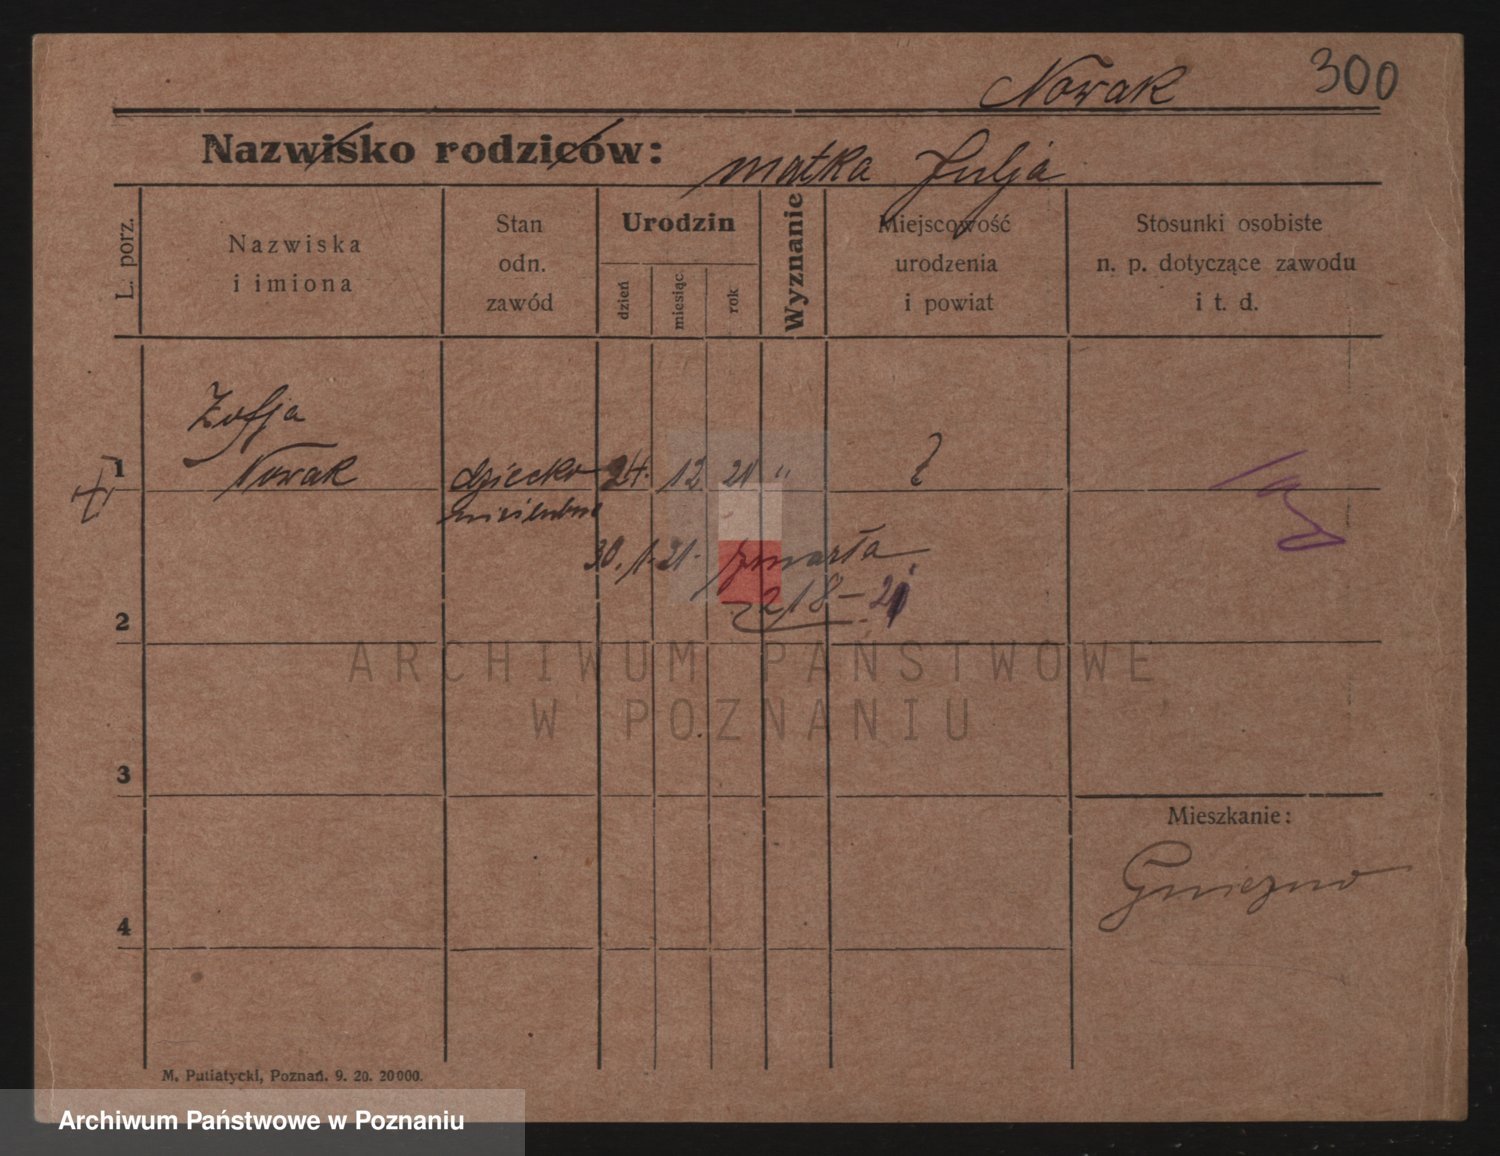 Nowak 300
Nazwisko rodziców: matka Julja
L. porz.
Nazwiska
i imiona
Stan
odn.
zawód
Urodzin
dzień
miesiąc
rok
Wyznanie
Miejscowość
urodzenia
i powiat
Stosunki osobiste
n. p. dotyczące zawodu
i t. d.
Zofja
1 Nowak dziecko 24. 12 21 "
nieślubne
30. 1. 21. zmarła
218-21
2
3
Mieszkanie:
Gniezno
4
M. Putiatycki, Poznań. 9. 20. 20000.
ARCHIWUM PAŃSTWOWE
W POZNANIU
Archiwum Państwowe w Poznaniu